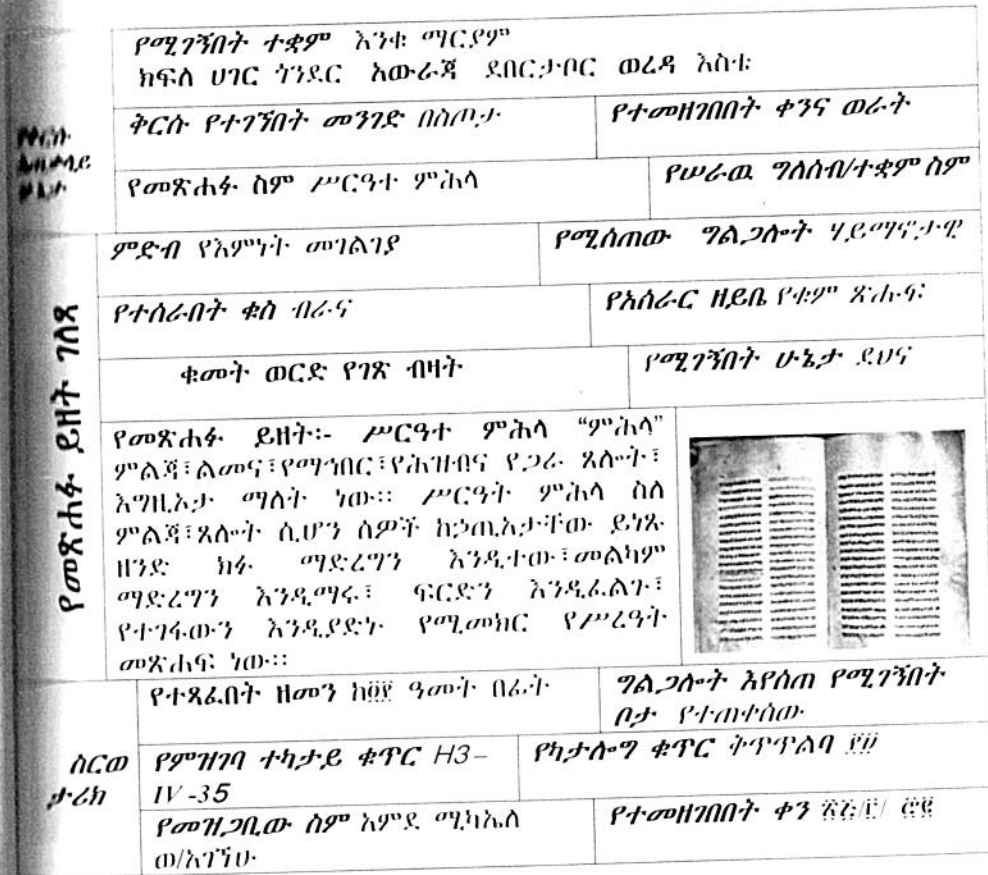 የሚገኝበት ተቋም እንቁ ማርያም
ክፍለ ሀገር ጎንደር አውራጃ ደበርታቦር ወረዳ እስቴ
ቅርሱ የተገኝበት መንገድ በስጦታ
የተመዘገበበት ቀንና ወራት
የመጽሐፉ ስም ሥርዓተ ምሕላ
የሠራዉ ግለሰብ/ተቋም ስም
የመጽሐፉ ይዘት ገለጻ
ምድብ የእምነት መገልገያ
የሚሰጠው ግልጋሎት ሃይማኖታዊ
የተሰራበት ቁስ ብራና
የአሰራር ዘይቤ የቁም ጽሑፍ
ቁመት ወርድ የገጽ ብዛት
የሚገኝበት ሁኔታ ደህና
የመጽሐፉ ይዘት፡- ሥርዓተ ምሕላ “ምሕላ”
ምልጃ፣ልመና፣የማኅበር፣የሕዝብና የጋራ ጸሎት፣
እግዚኦታ ማለት ነው። ሥርዓት ምሕላ ስለ
ምልጃ፣ጸሎት ሲሆን ሰዎች ከኃጢአታቸው ይነጹ
ዘንድ ክፉ ማድረግን እንዲተው፣መልካም
ማድረግን እንዲማሩ፣ ፍርድን እንዲፈልጉ፣
የተገፋውን እንዲያድኑ የሚመክር የሥረዓት
መጽሐፍ ነው።
የተጻፈበት ዘመን ዓመት በፊት
ግልጋሎት እየሰጠ የሚገኝበት
ቦታ የተጠቀሰው
ስርወ
ታሪክ
የምዝገባ ተካታይ ቁጥር H3-
IV-35
የካታሎግ ቁጥር ቅጥጥልባ
የመዝጋቢው ስም አምደ ሚካኤለ
ወ/አገኝሁ
የተመዘገበበት ቀን